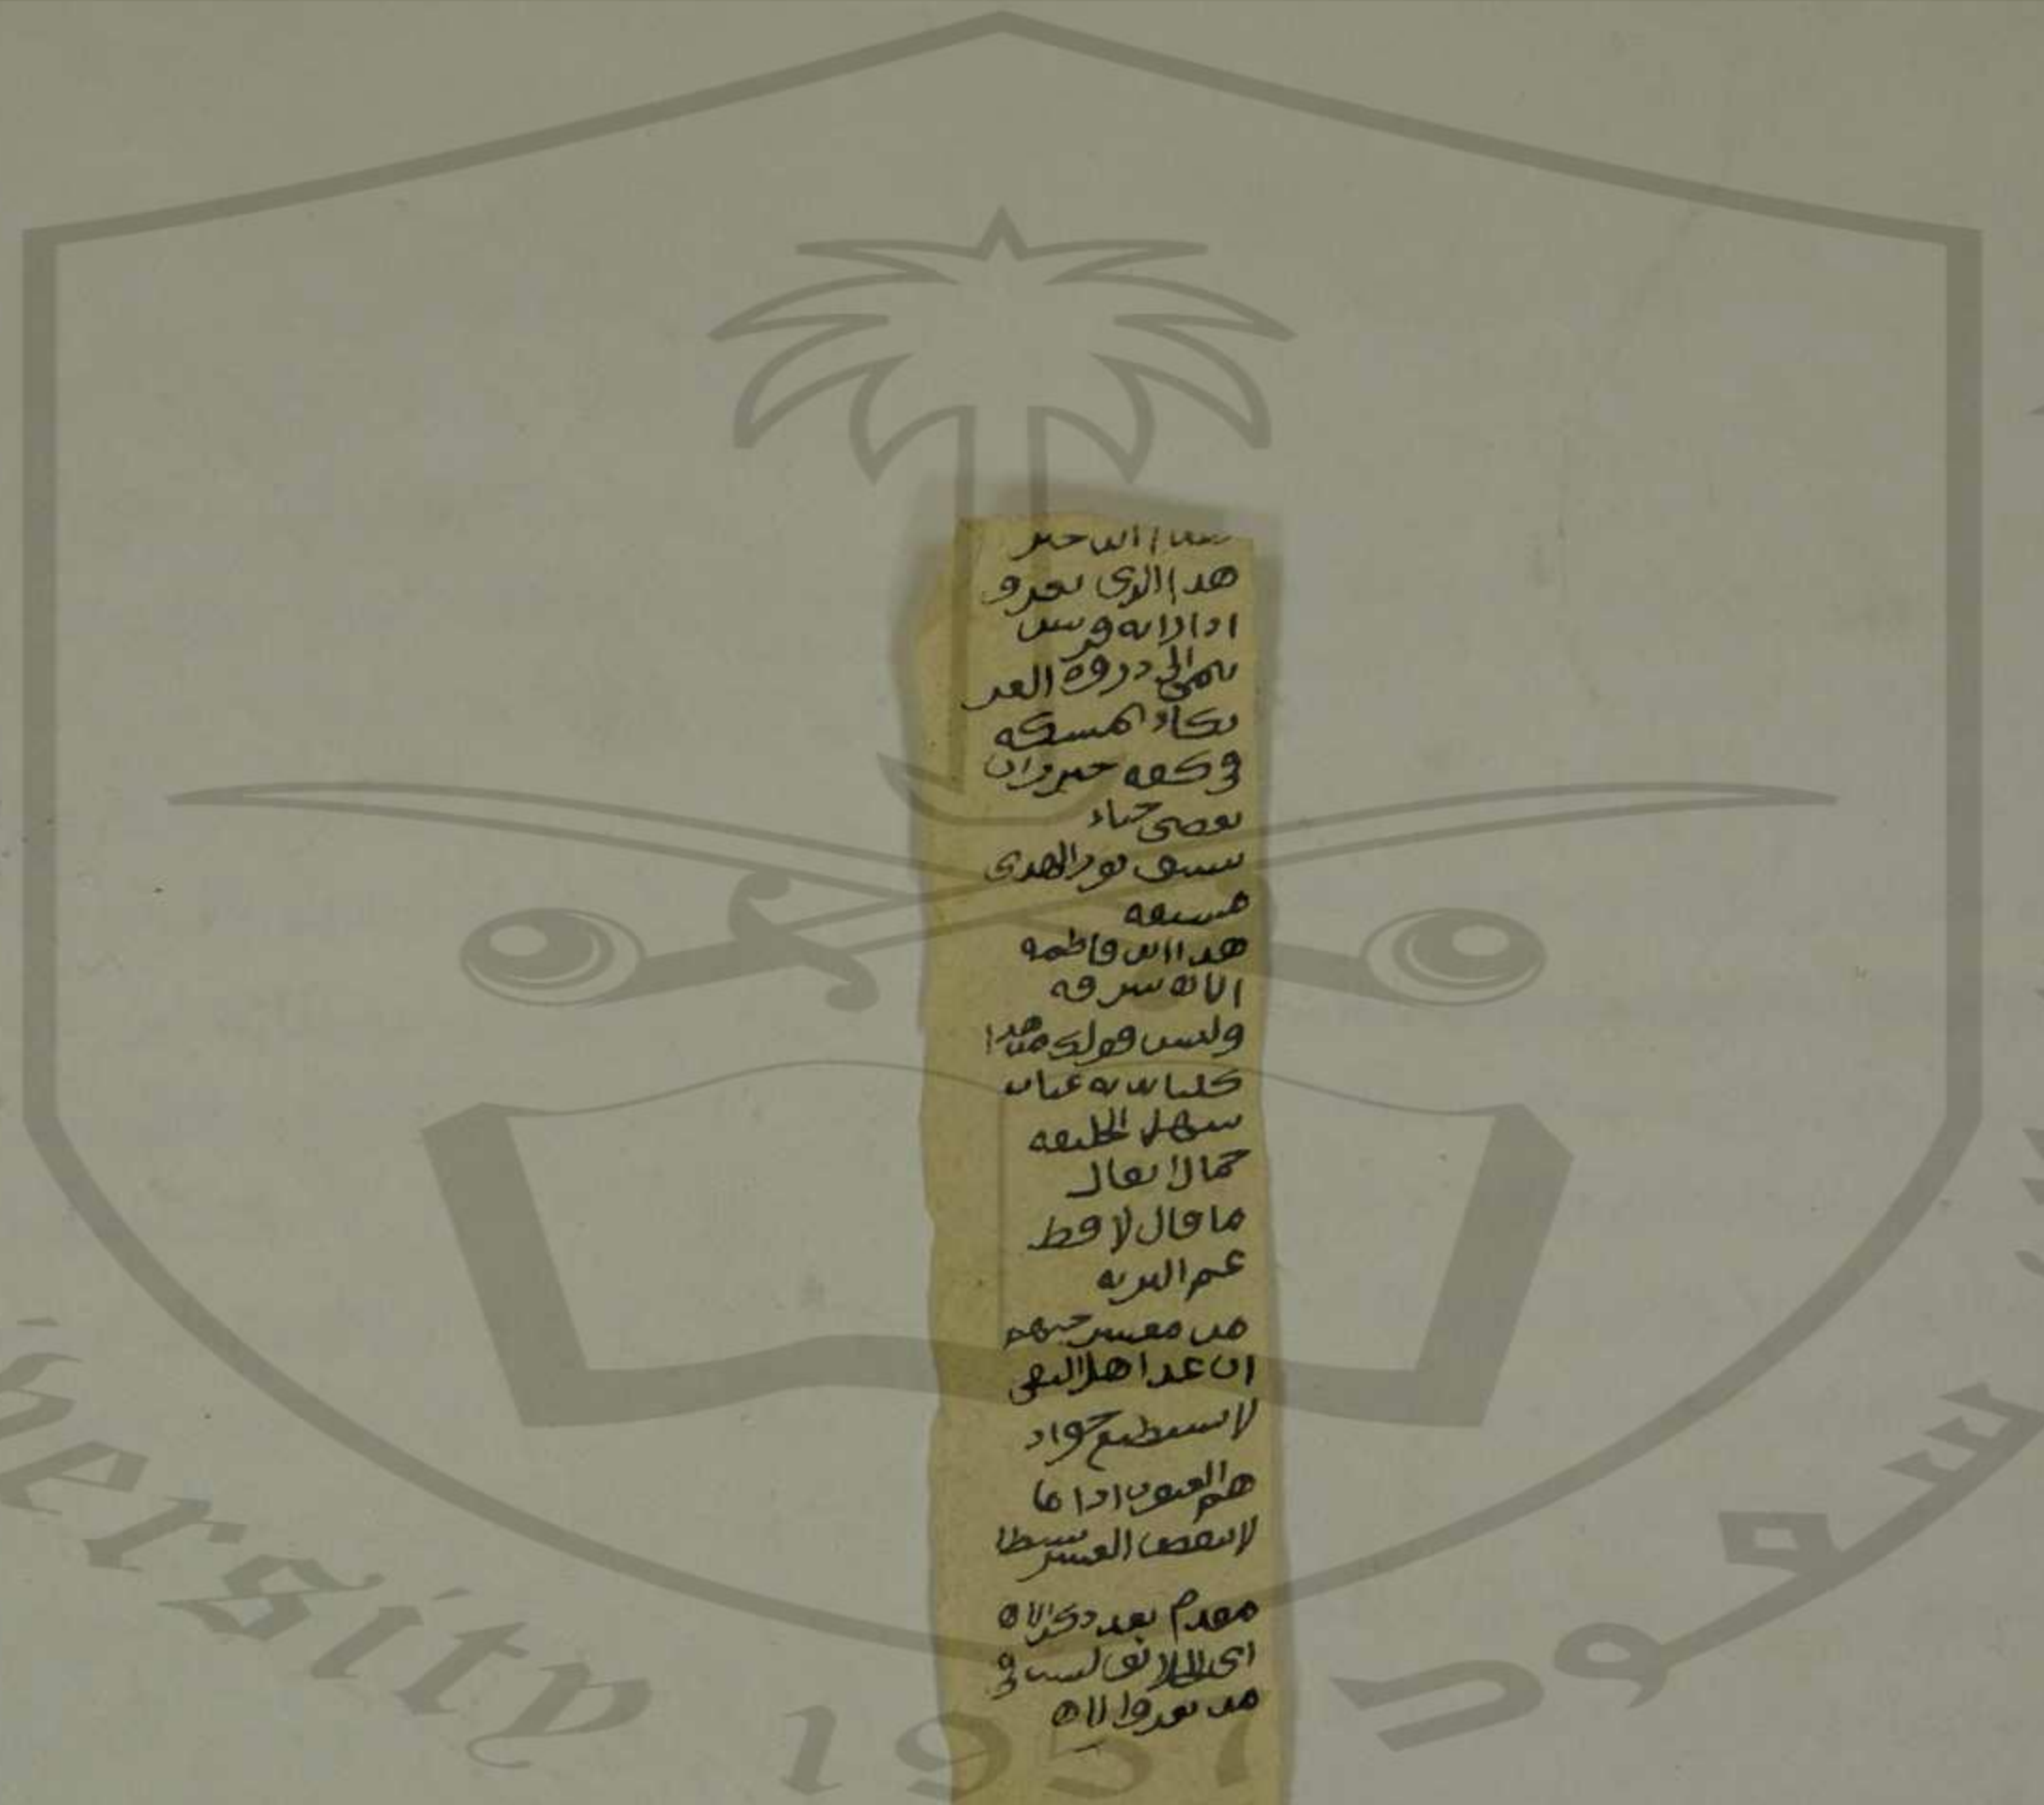 هذا ابن خير
هذا الذي تعرف
اذا راته قريش
ينمى الى ذروة العز
يكاد يمسكه
في كفه خيزران
يغضي حياء
ينشق نور الهدى
مشتقه
هذا ابن فاطمه
الله شرفه
وليس قولك من هذا
كلتا يديه غياث
سهل الخليقه
حمال اثقال
ما قال لا قط
عم البريه
من معشر حبهم
ان عد اهل التقى
لا يستطيع جواد
هم الغيوث اذا ما
لا ينقص العسر بسطا
مقدم بعد ذكر الله
اي الخلائق ليست في
من يعرف الله
ersity 1957
سعود